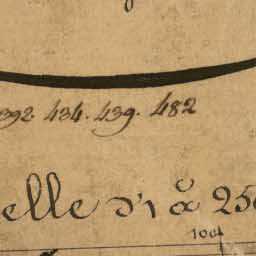 392. 434. 439. 482
elle d'1 à 250
100